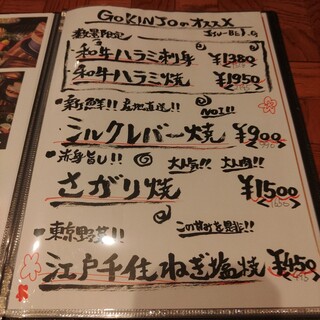 GOKINJOのオススメ
数量限定
和牛ハラミ刺身 ¥1380
和牛ハラミ焼 ¥1950
新鮮!! 産地直送!! NO1!!
シルクレバー焼 ¥900
赤身旨し!! 大人気!! 大人肉!!
さがり焼 ¥1500
東京野菜!! この甘みを是非!!
江戸千住ねぎ塩焼 ¥450